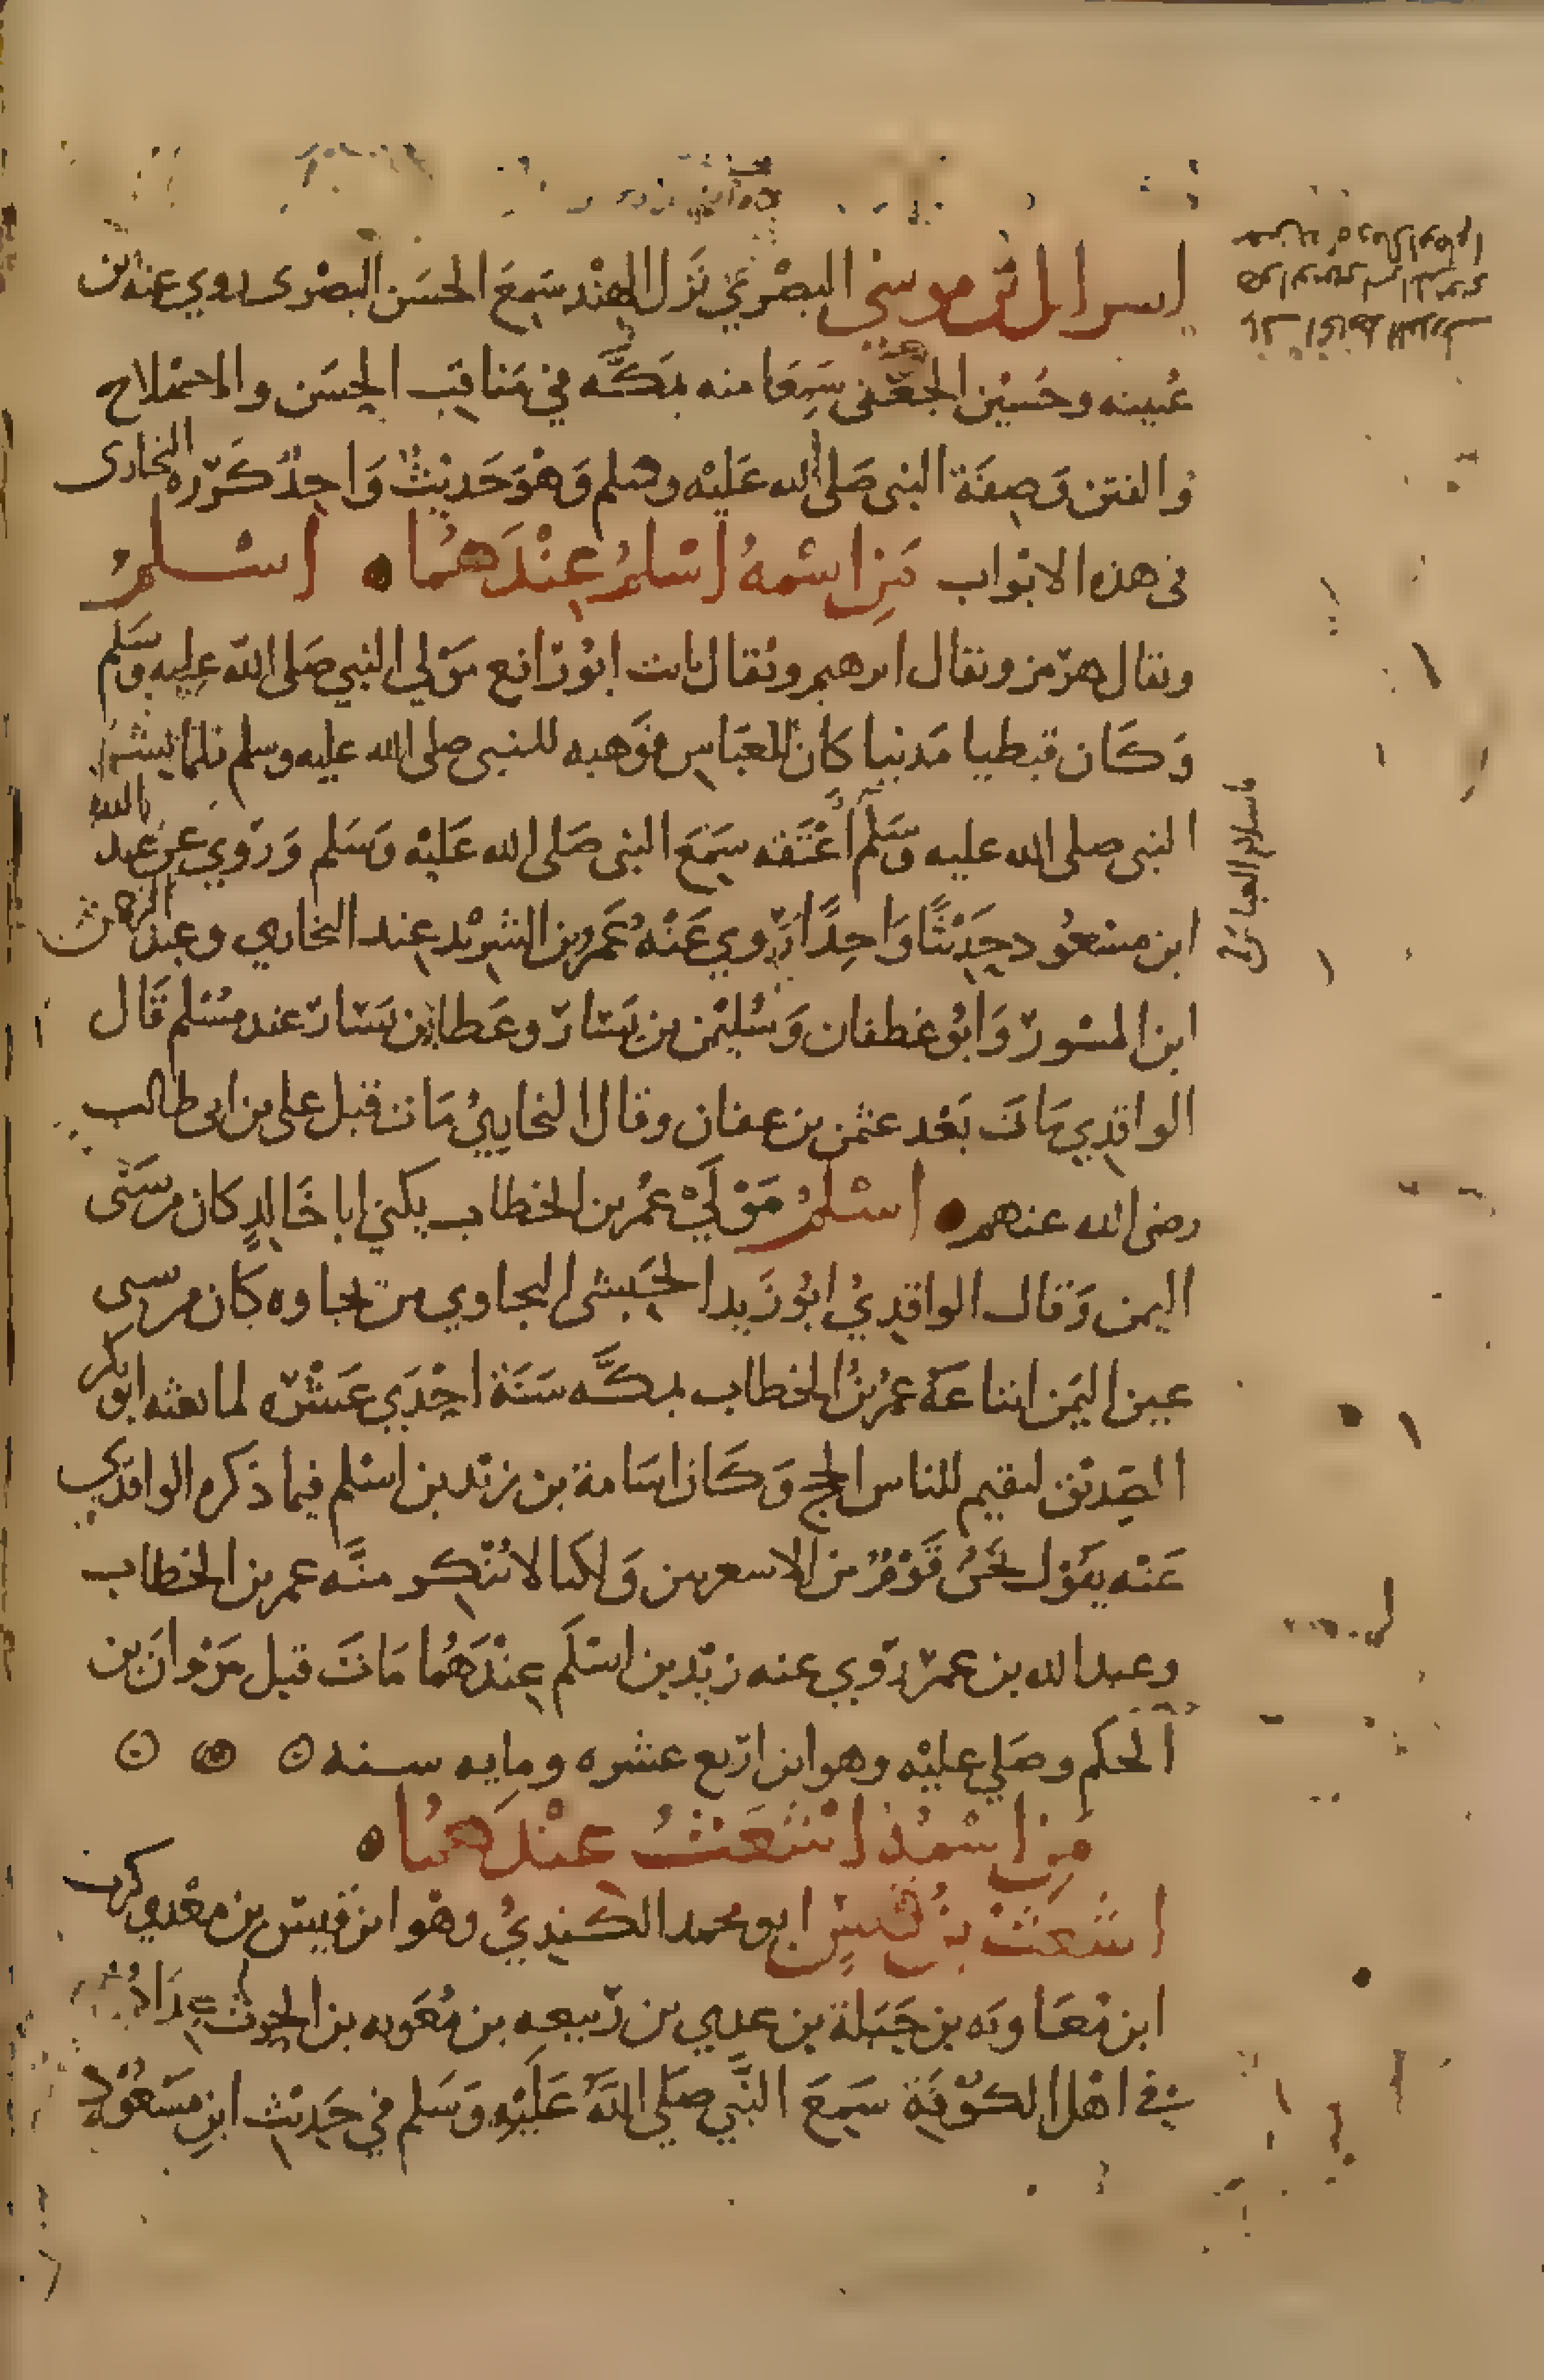 اسرايل بن موسى البصري نزل الهند سمع الحسن البصرى روي عنه ابن
عيينه وحسين الجعفى سمعا منه بمكة في مناقب الحسن والاصلاح
والفتن وصفة النبى صلى الله عليه وسلم وهو حديث واحد كرره البخارى
فى هذه الابواب من اسمه اسلم عندهما اسلم
ويقال هرمز ويقال ابرهيم ويقال ثابت ابو رافع مولي النبي صلى الله عليه وسلم
وكان قبطيا مدنيا كان للعباس فوهبه للنبى صلى الله عليه وسلم فلما بشر
النبى صلى الله عليه وسلم اعتقه سمع النبى صلى الله عليه وسلم وروي عن عبد الله
ابن مسعود حديثا واحدا روي عنه عمرو بن الشريد عند البخاري وعبد الرحمن
ابن المسور وابو غطفان وسليمن بن يسار وعطا بن يسار عند مسلم قال
الواقدي مات بعد عثمن بن عفان وقال البخاري مات قبل على بن ابى طالب
رضى الله عنهم اسلم مولي عمر بن الخطاب يكني ابا خالد كان من سبى
اليمن وقال الواقدي ابو زيد الحبشى البجاوي من بجاوه كان من سبى
عين اليمن ابتاعه عمر بن الخطاب بمكه سنة احدي عشره لما بعثه ابو بكر
الصديق ليقيم للناس الحج وكان اسامة بن زيد بن اسلم فيما ذكره الواقدي
عنه يقول نحن قوم من الاشعريين ولكنا لا ننكر منه عمر بن الخطاب
وعبد الله بن عمر روي عنه زيد بن اسلم عندهما مات قبل مروان بن
الحكم وصلي عليه وهو ابن اربع عشره ومايه سنه
من اسمه اشعث عندهما
اشعث بن قيس ابو محمد الكندي وهو ابن قيس بن معدي كرب
ابن معاويه بن جبلة بن عدي بن ربيعه بن معويه بن الحرث
في اهل الكوفة سمع النبي صلي الله عليه وسلم في حديث ابن مسعود
باسلام العباس